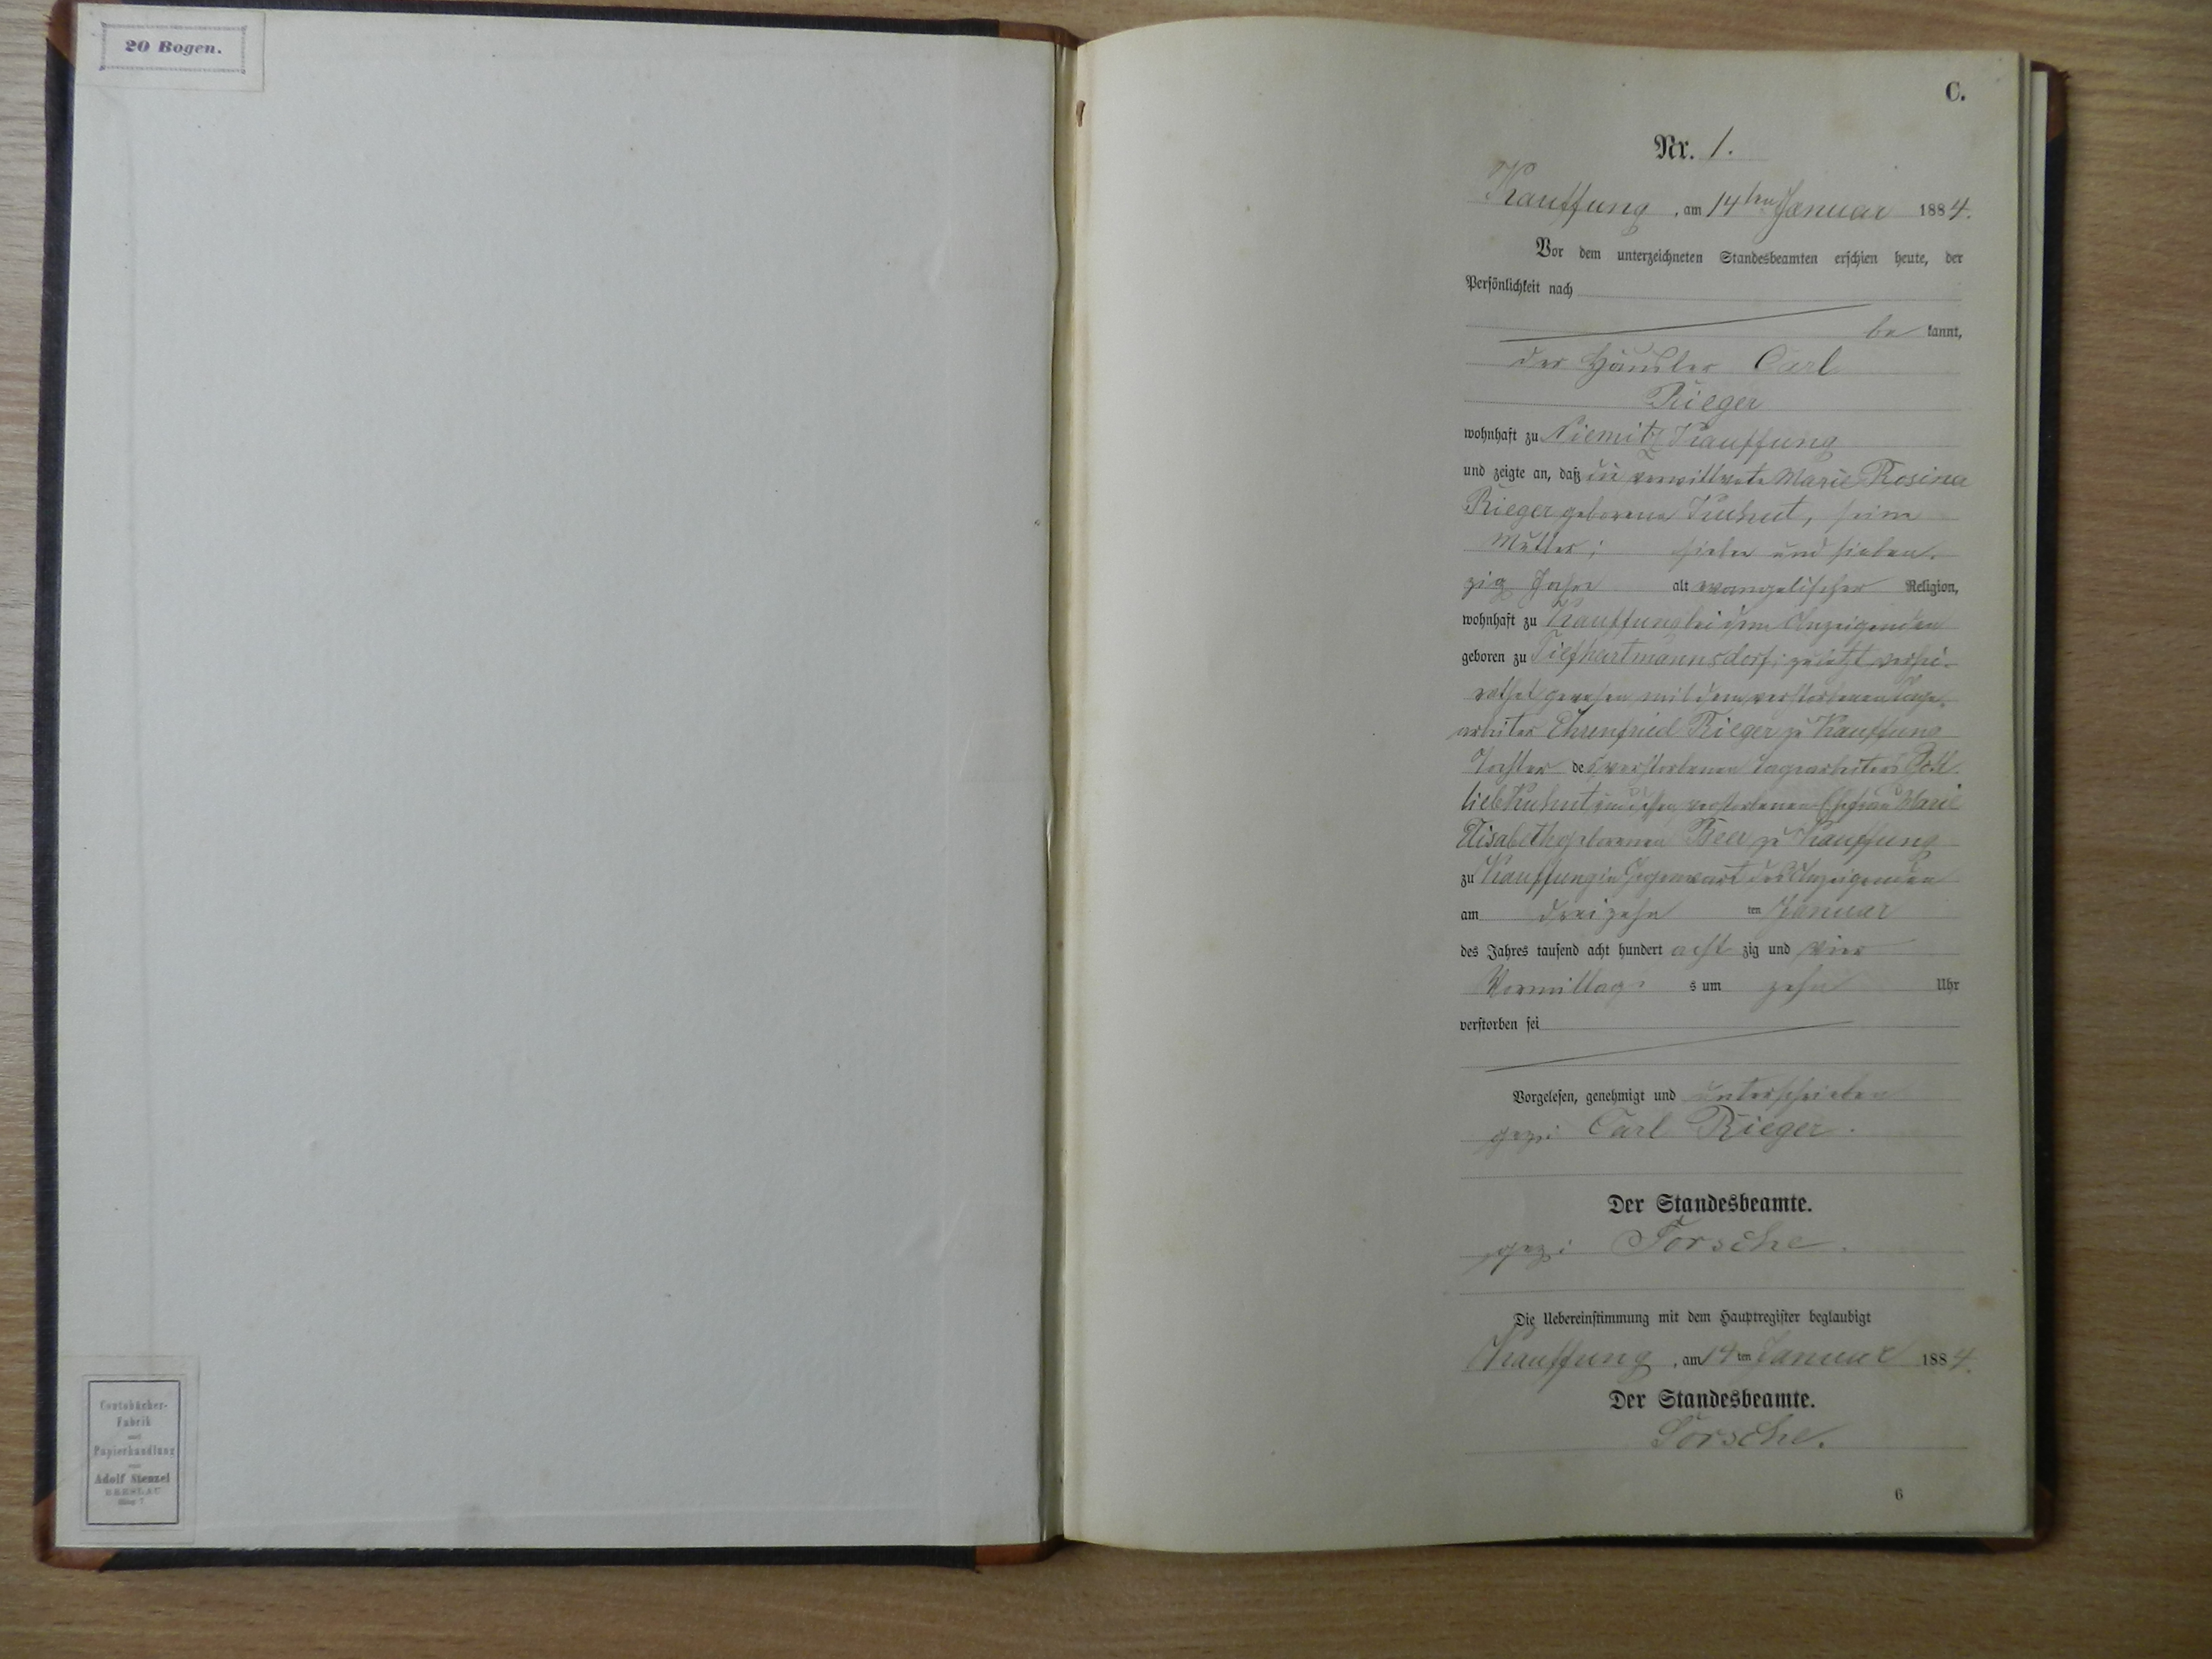 20 Bogen.
Contobücher-
Fabrik
und
Papierhandlung
von
Adolf Stenzel
BRESLAU
C.
Nr. 1.
Kauffung, am 14ten Januar 1884.
Vor dem unterzeichneten Standesbeamten erschien heute, der
Persönlichkeit nach
be kannt,
der Häusler Carl
Rieger
wohnhaft zu Niemitz Kauffung
und zeigte an, daß die verwittwete Marie Rosina
Rieger geborene Kuhnt, seine
Mutter; sieben und sieben-
zig Jahre alt evangelischer Religion,
wohnhaft zu Kauffung bei dem Anzeigenden
geboren zu Tiefhartmannsdorf; zuletzt verhei-
rathet gewesen mit dem verstorbenen Tage-
arbeiter Ehrenfried Rieger zu Kauffung
Tochter des verstorbenen Tagearbeiters Gott-
lieb Kuhnt und dessen verstorbenen Ehefrau Marie
Elisabeth geborenen Beer zu Kauffung
zu Kauffung in Gegenwart des Anzeigenden
am dreizehn ten Januar
des Jahres tausend acht hundert acht zig und vier
Vormittag s um zehn Uhr
verstorben sei
Vorgelesen, genehmigt und unterschrieben
gez: Carl Rieger.
Der Standesbeamte.
gez: Torsche.
Die Uebereinstimmung mit dem Hauptregister beglaubigt
Kauffung, am 14ten Januar 1884.
Der Standesbeamte.
Torsche.
6